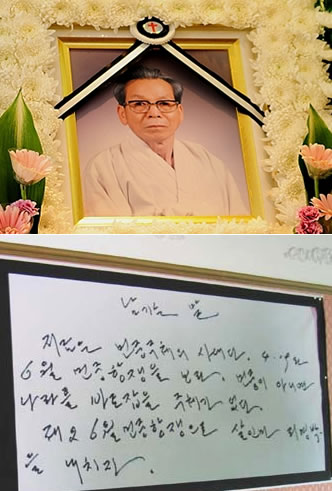 남기는 말
지금은 민중주체의 시대다. 4.19와
6월 민중항쟁을 보라. 민중이 아니면
나라를 바로잡을 주체가 없다.
제2 6월 민중항쟁으로 살인마 리명박
을 내치자.